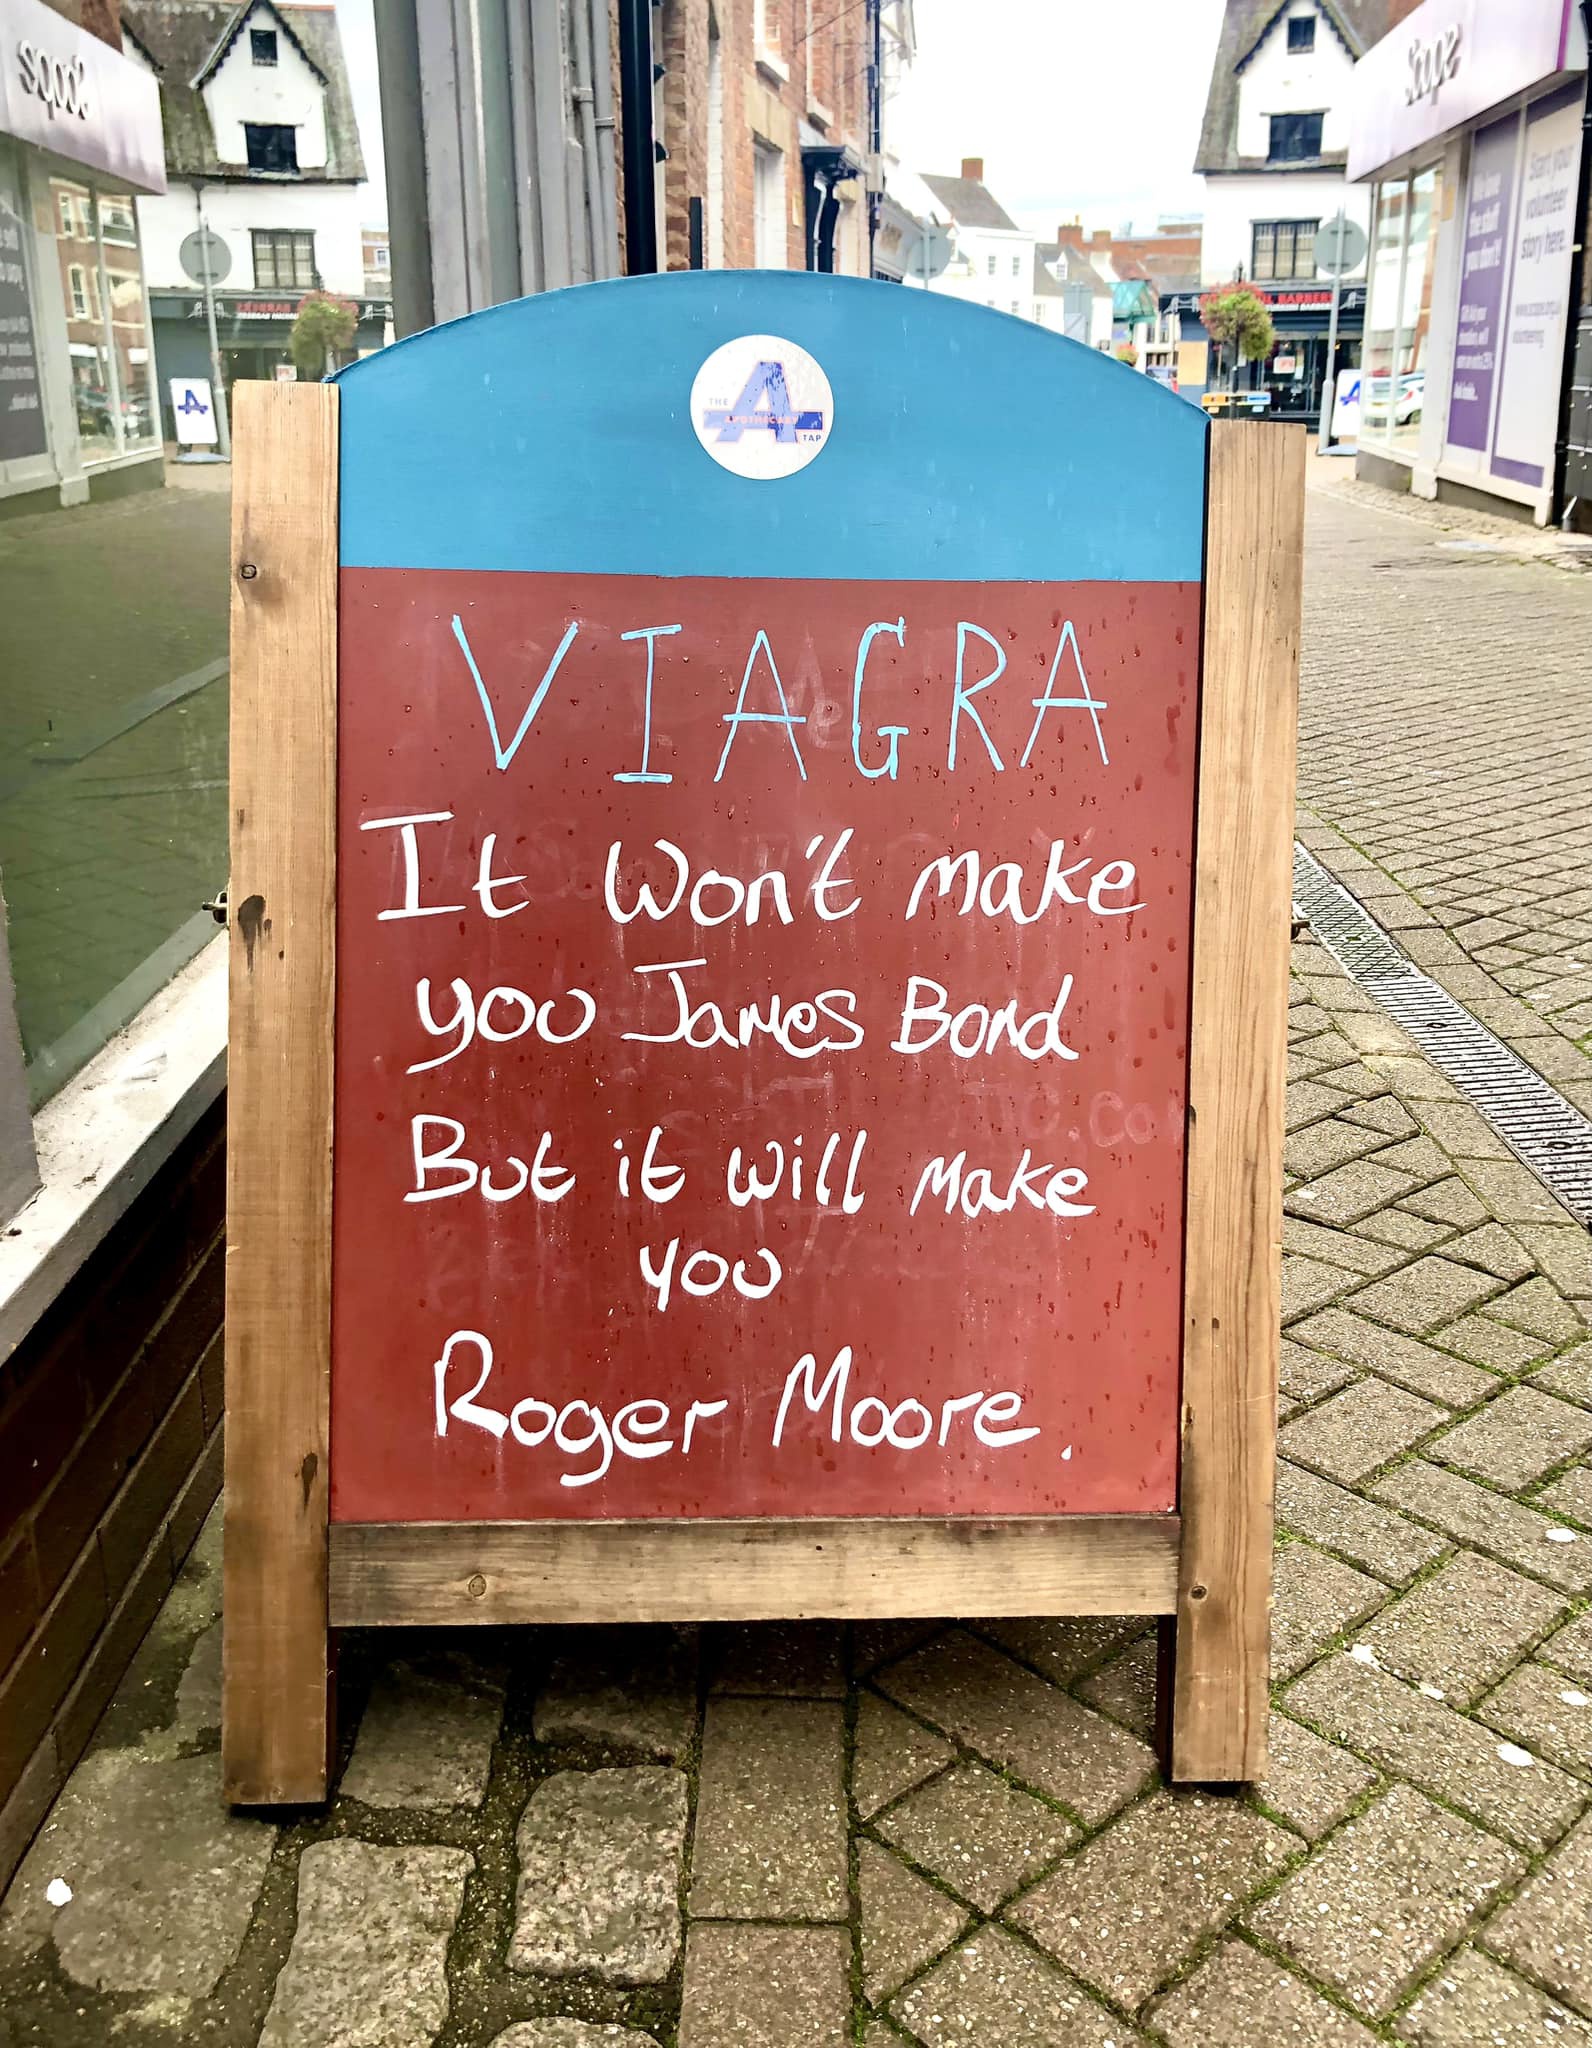 scope
Scope
We have
the stuff
you don't!
Start your
volunteer
story here.
THE
A
APOTHECARY
TAP
VIAGRA
It won't make
you James Bond
But it will make
you
Roger Moore.